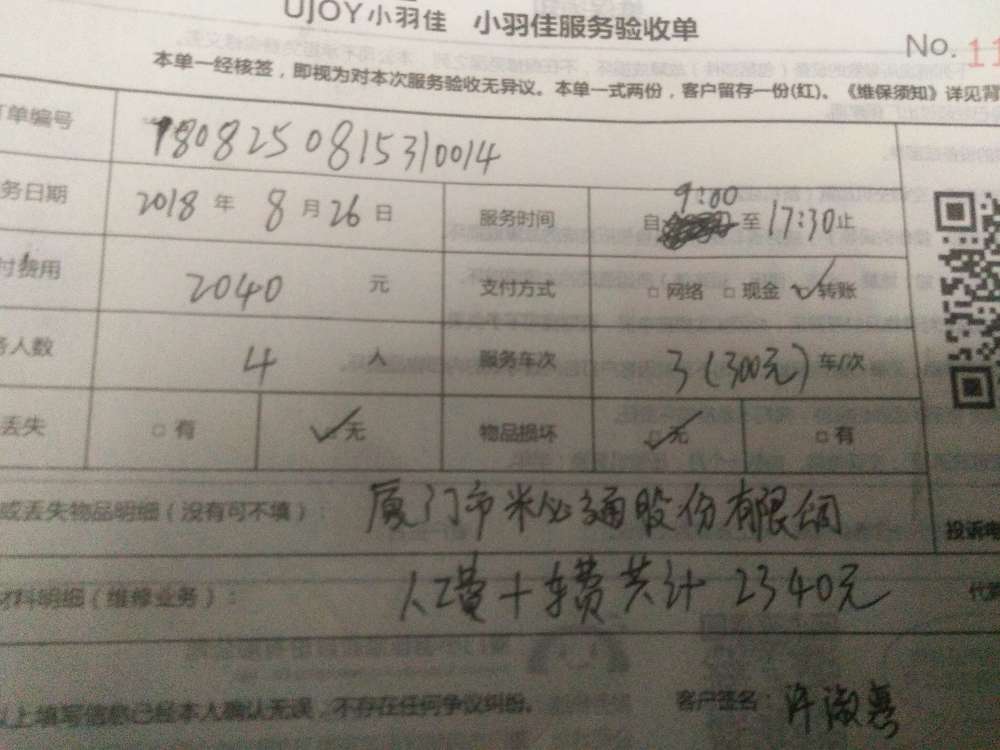 UJOY小羽佳 小羽佳服务验收单
No. 11
本单一经核签，即视为对本次服务验收无异议。本单一式两份，客户留存一份(红)。《维保须知》详见背
订单编号 180825081531 0014
务日期 2018 年 8 月 26 日 服务时间 自 9:00 至 17:30 止
付费用 2040 元 支付方式 □ 网络 □ 现金 ☑ 转账
务人数 4 人 服务车次 3(300元) 车/次
丢失 □ 有 ☑ 无 物品损坏 ☑ 无 □ 有
或丢失物品明细（没有可不填）： 厦门市米必通股份有限公司
投诉电
材料明细（维修业务）： 人工费+车费共计 2340元
以上填写信息已经本人确认无误，不存在任何争议纠纷。 客户签名：许淑惠